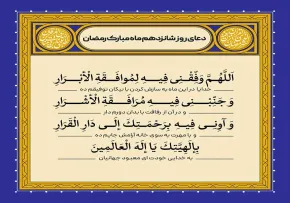 دعای روز شانزدهم ماه مبارک رمضان
اَللّهُمَّ وَفِّقْنی فیهِ لِمُوافَقَةِ الْأبْرارِ
خدایا در این ماه به سازش کردن با نیکان توفیقم ده
وَ جَنِّبْنی فیهِ مُرافَقَةَ الْأشْرارِ
و در آن از رفاقت با بدان دورم دار
وَ آوِنی فیهِ بِرَحْمَتِكَ إلی دارِ الْقَرارِ
و با مهرت به سوی خانه آرامش جایم ده
بِإلهِیَّتِكَ یا إلهَ الْعالَمینَ
به خدایی خودت ای معبود جهانیان